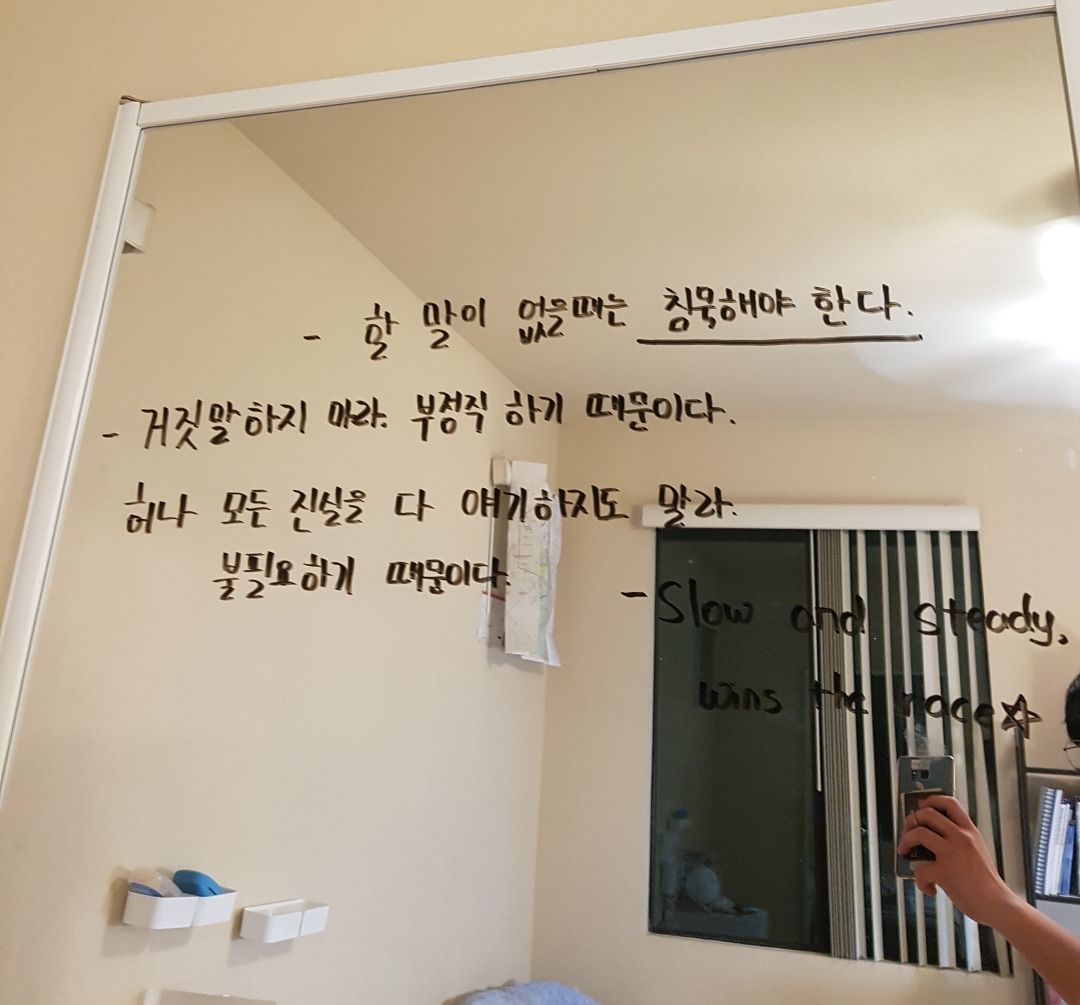 - 할 말이 없을때는 침묵해야 한다.
- 거짓말하지 마라. 부정직 하기 때문이다.
허나 모든 진실을 다 얘기하지도 말라.
불필요하기 때문이다.
- Slow and steady,
wins the race☆